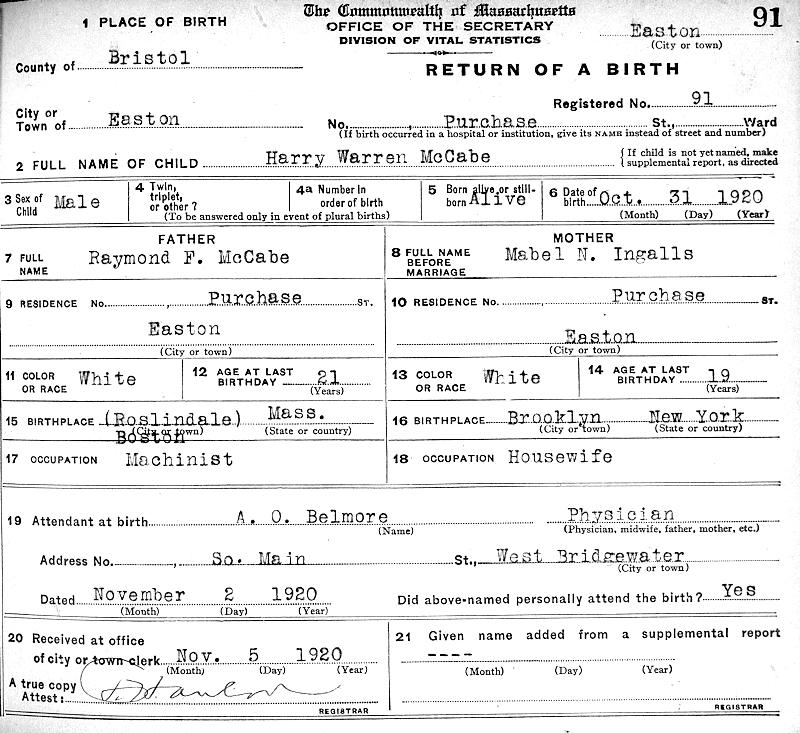 The Commonwealth of Massachusetts
OFFICE OF THE SECRETARY
DIVISION OF VITAL STATISTICS
91
1 PLACE OF BIRTH
Easton
(City or town)
County of Bristol
RETURN OF A BIRTH
Registered No. 91
City or Town of Easton
No. , Purchase St., Ward
(If birth occurred in a hospital or institution, give its NAME instead of street and number)
2 FULL NAME OF CHILD Harry Warren McCabe
{ If child is not yet named, make
{ supplemental report, as directed
3 Sex of Child Male
4 Twin, triplet, or other?
4a Number in order of birth
(To be answered only in event of plural births)
5 Born alive or still-born Alive
6 Date of birth Oct. 31 1920
(Month) (Day) (Year)
FATHER
7 FULL NAME Raymond F. McCabe
MOTHER
8 FULL NAME BEFORE MARRIAGE Mabel N. Ingalls
9 RESIDENCE No. , Purchase ST.
Easton
(City or town)
10 RESIDENCE No. Purchase ST.
Easton
(City or town)
11 COLOR OR RACE White
12 AGE AT LAST BIRTHDAY 21
(Years)
13 COLOR OR RACE White
14 AGE AT LAST BIRTHDAY 19
(Years)
15 BIRTHPLACE (Roslindale) Mass.
(City or town) (State or country)
Boston
16 BIRTHPLACE Brooklyn New York
(City or town) (State or country)
17 OCCUPATION Machinist
18 OCCUPATION Housewife
19 Attendant at birth A. O. Belmore Physician
(Name) (Physician, midwife, father, mother, etc.)
Address No. , So. Main St., West Bridgewater
(City or town)
Dated November 2 1920
(Month) (Day) (Year)
Did above-named personally attend the birth? Yes
20 Received at office
of city or town clerk Nov. 5 1920
(Month) (Day) (Year)
A true copy
Attest:
REGISTRAR
21 Given name added from a supplemental report
----
(Month) (Day) (Year)
REGISTRAR